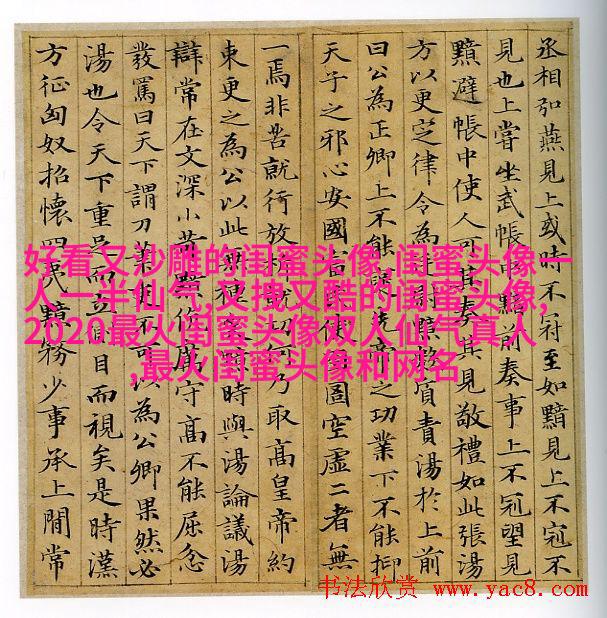 丞相弘燕見上或時不冠至如黯見上不冠不
見也上嘗坐武帳中黯前奏事上不冠望見
黯避帳中使人可其奏其見敬禮如此張湯
方以更定律令為廷尉黯數質責湯於上前
曰公為正卿上不能先帝之功業下不能抑
天子之邪心安國富民使圄空虛二者無
一焉非苦就行放析就功何乃取高皇帝約
束更之為公以此無種矣黯時與湯論議湯
辯常在文深小苛黯伉厲守高不能屈忿
發罵曰天下謂刀筆吏不可以為公卿果然必
湯也令天下重足而立側目而視矣是時漢
方征匈奴招懷四夷黯務少事承上間常
好看又沙雕的闺蜜头像,闺蜜头像一
人一半仙气,又拽又酷的闺蜜头像,
2020最火闺蜜头像双人仙气真人
,最火闺蜜头像和网名
书法欣赏 www.yac8.com